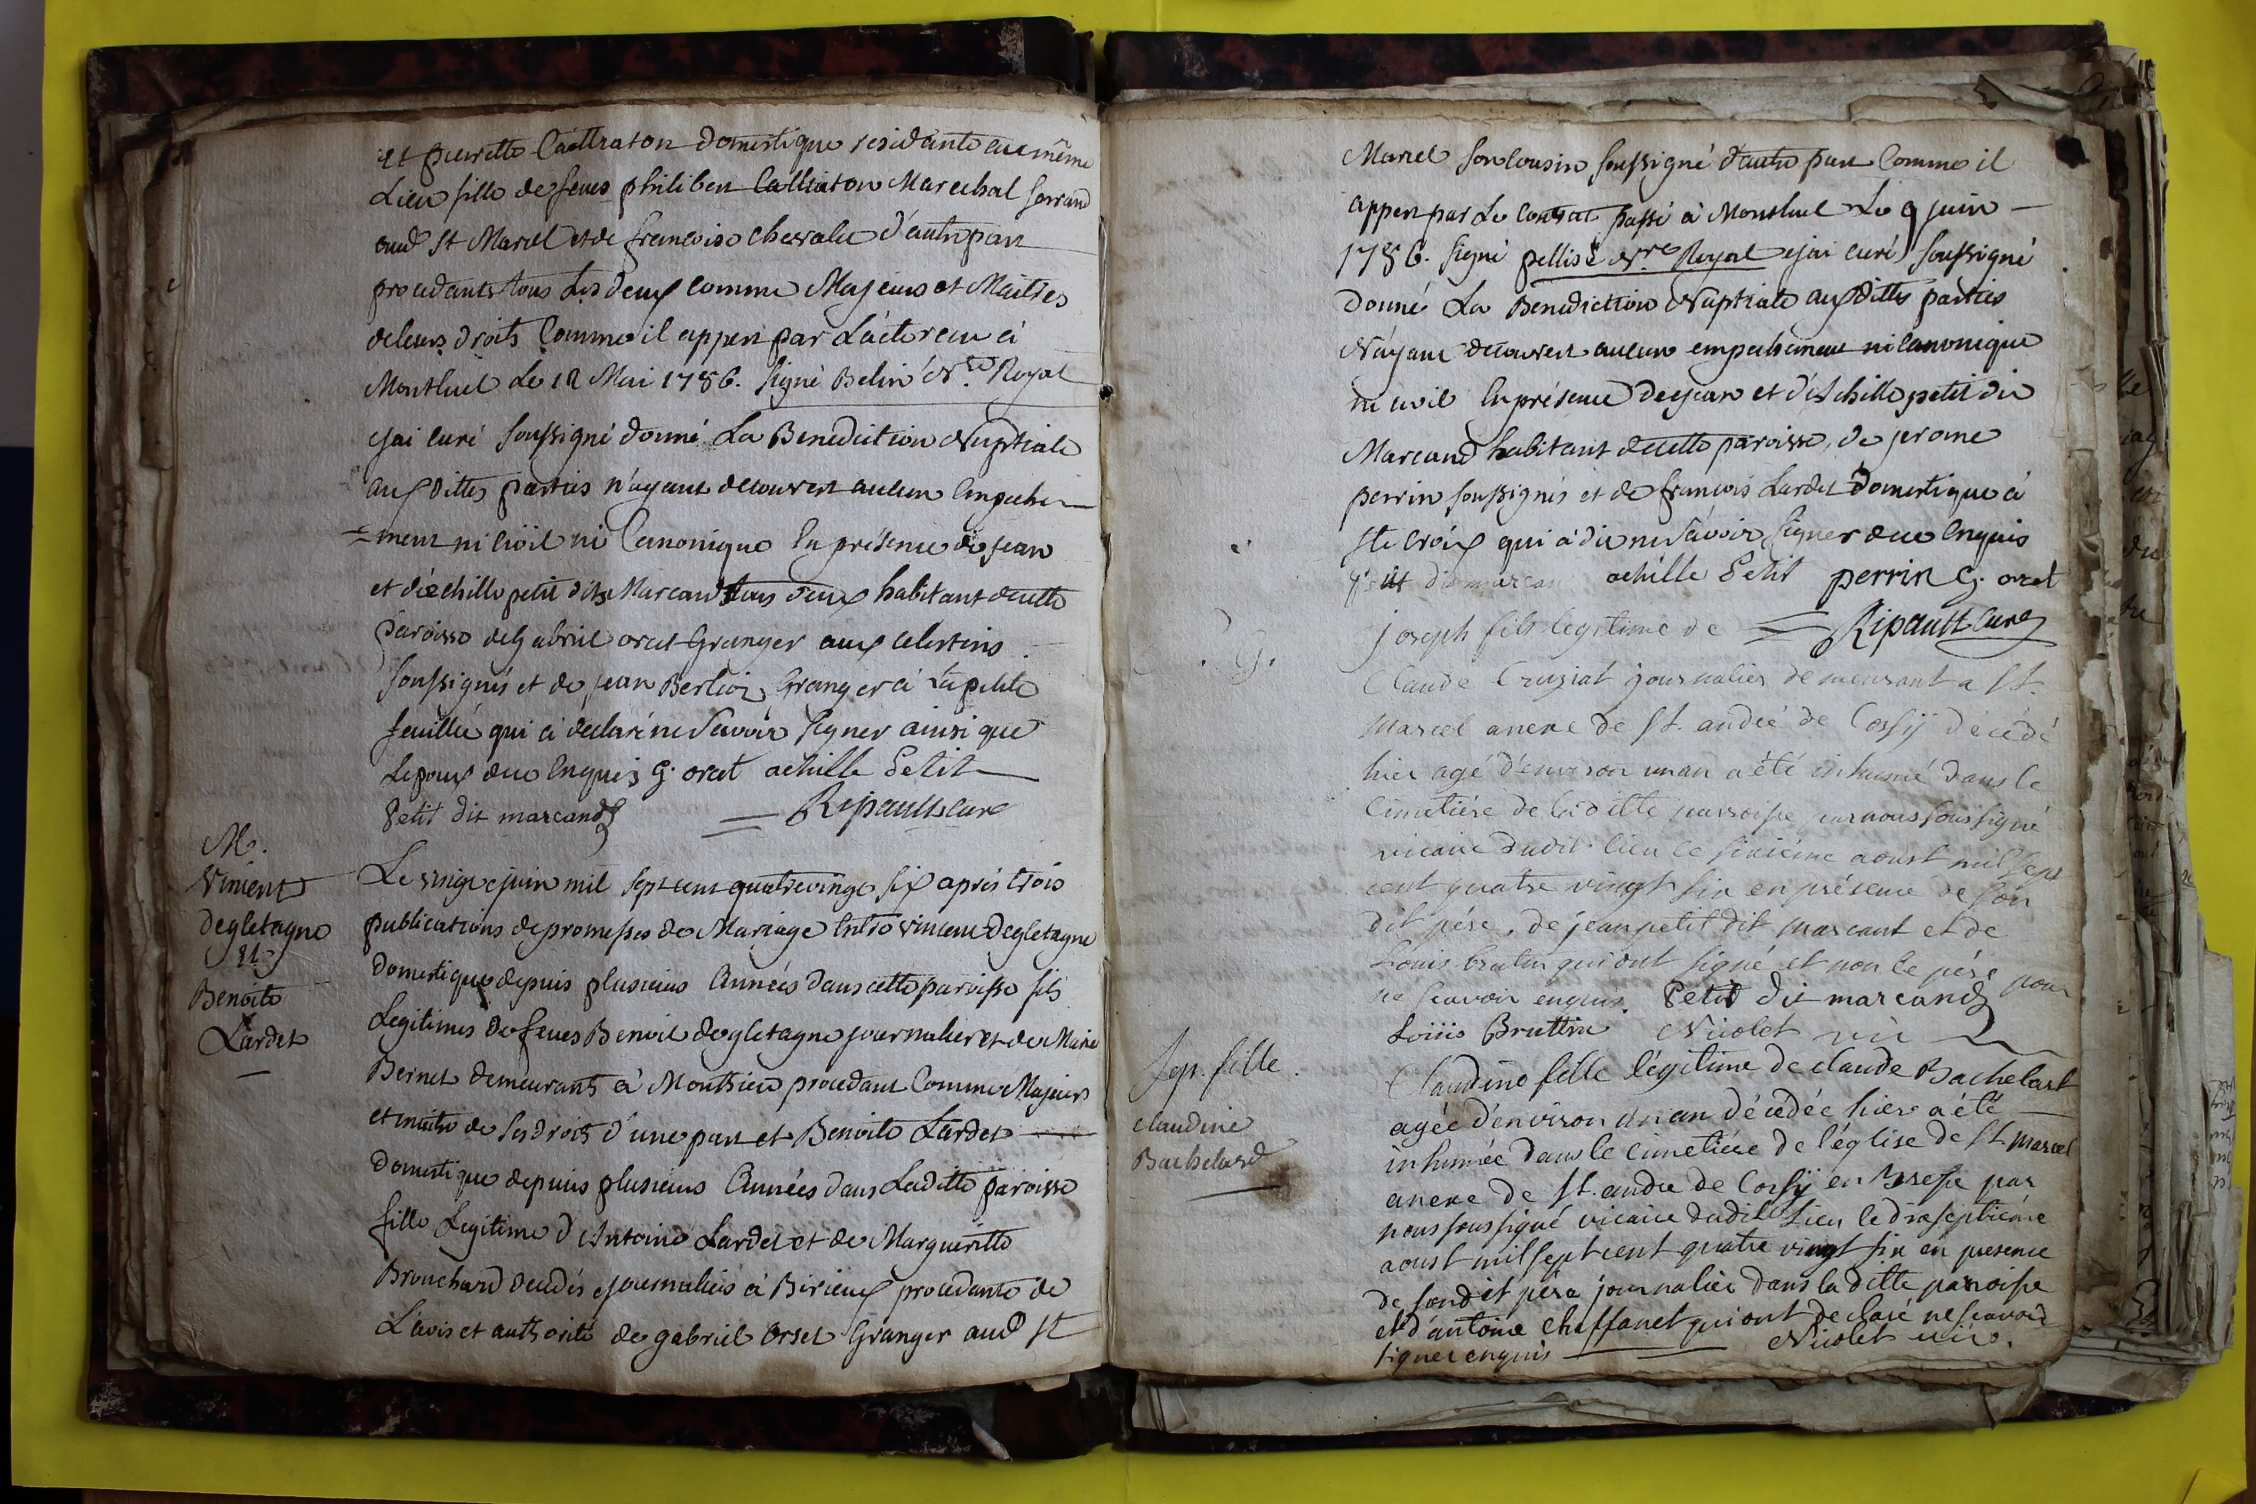 et pierrette Callraton domestique residante au même
Lieu fille de feus philibert Callraton Marechal ferrand
aud St Marcel et de francoise chevalier d'autre part
procedants tous Les deux comme Majeurs et Maitres
de leurs droits Comme il appert par L'acte recu à
Montluel Le 12 Mai 1786. signé Belin Nre Royal
jai curé soussigné donné La Benediction Nuptiale
aux dittes parties n'ayant decouvert aucun Empeche
=ment ni civil ni Canonique En présence de jean
et d'Achille petit dits Marcand tous deux habitant de cette
paroisse de gabriel orcet Granger aux celestins
soussignés et de jean Berlioz Granger à la petite
feuillée qui à declaré ne Savoir signer ainsi que
Lepoux de ce Enquis G. orcet achille Petit
Petit dit marcand Ripault curé
M.
Vincent
Degletagne
et
Benoite
Lardet
Le vingt juin mil sept cent quatrevingt six après trois
publications de promesses de Mariage Entre vincent Degletagne
domestique depuis plusieurs Années dans cette paroisse fils
Legitimes de feues Benoit degletagne journalier et de Marie
Bernet demeurants à Monthieu procedant Comme Majeurs
et maitre de ses droits d'une part et Benoite Lardet
Domestique depuis plusieurs Années dans Laditte paroisse
fille Legitime d'Antoine Lardet et de Margueritte
Brouchard decedés journaliers à Birieux procedante de
L'avis et authorité de gabriel orset Granger aud St
Marcel son cousin soussigné d'autre part Comme il
appert par Le contrat passé à Montluel Le 9 juin
1786. signé pellisé Nre Royal jai curé soussigné
donné La Benediction Nuptiale aux dittes parties
N'ayant decouvert aucun empechement ni canonique
ni civil En présence de jean et d'Achille petit dit
Marcand habitant de cette paroisse, de jerome
perrin soussignés et de françois Lardet domestique à
Ste Croix qui à dit ne Savoir signer de ce Enquis
Petit dit marcan achille Petit perrin G. orcet
Ripault curé
joseph fils legitime de
Claude Cruziat journalier demeurant a St.
Marcel anexe de St. andré de Corsÿ décédé
hier agé d'environ un an a été inhumé dans le
Cimetiére de laditte parroisse par nous soussigné
vicaire dudit lieu le sixiéme aoust mil sept
cent quatre vingt six en présence de son
dit pére, de jean petit dit marcant et de
Louis brutin qui ont signé et non le pére pour
ne scavoir enquis. Petit dit marcand
Loüis Bruttin Nicolet vic
Sep. fille.
claudine
Bachelard
Claudine fille légitime de claude Bachelart
agée d'environ un an décédée hier a été
inhumée dans le cimetiére de l'église de St marcel
anexe de St. andre de Corsÿ en Bresse par
nous soussigné vicaire dudit Lieu le dixseptiéme
aoust mil sept cent quatre vingt six en presence
de sondit pére journalier dans laditte parroisse
et d'antoine chaffanet qui ont declaré ne scavoir
signer enquis Nicolet vic.